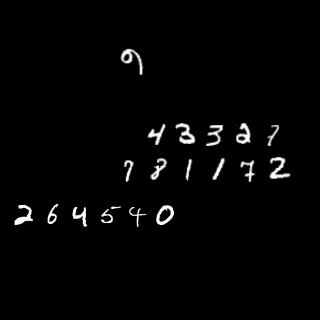 9
43327
781172
264540